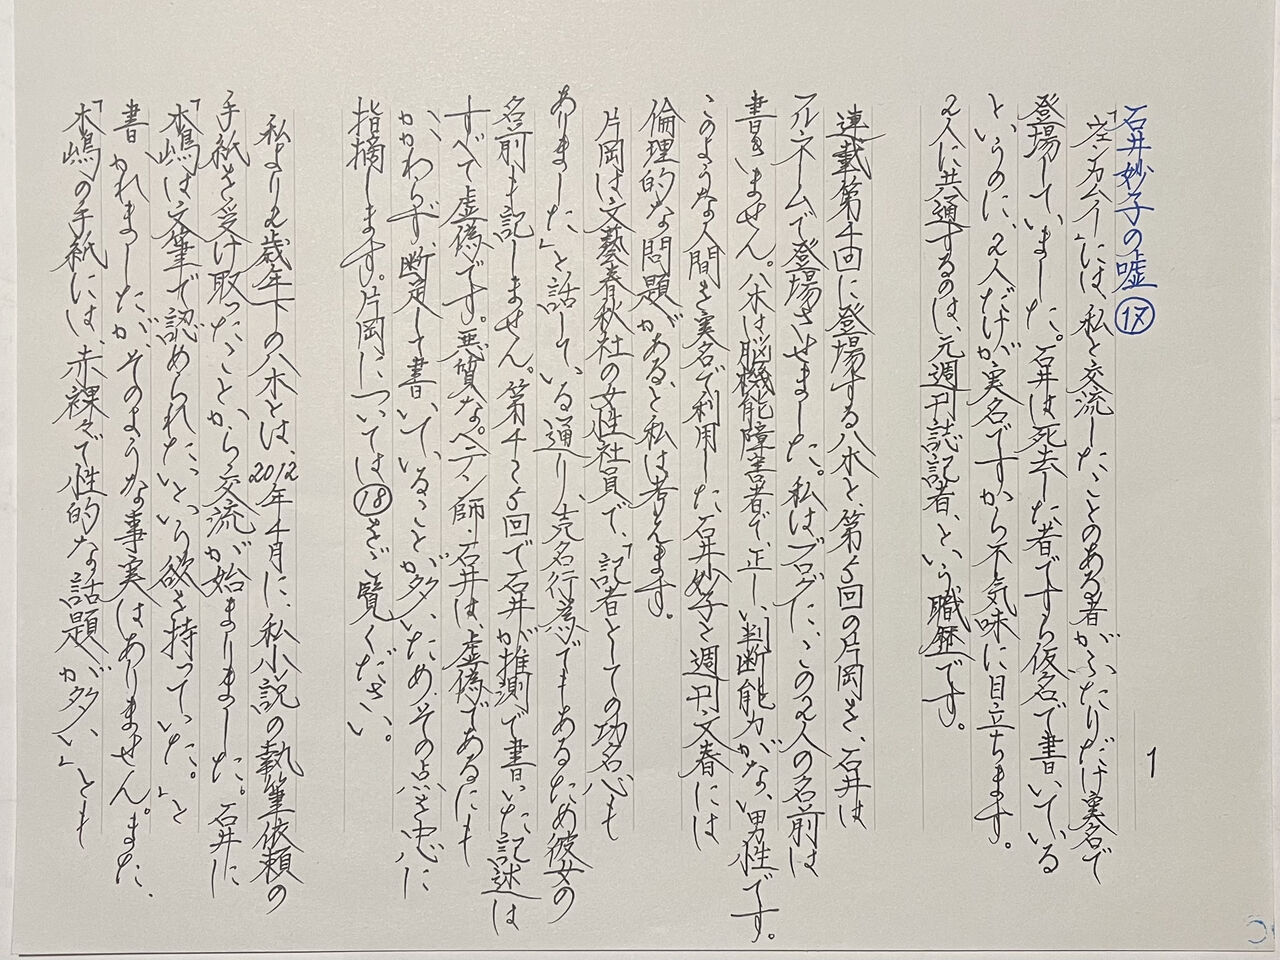 石井妙子の嘘⑰
「ヴェンカムイ」には、私と交流したことのある者がふたりだけ実名で
登場していました。石井は死去した者ですら仮名で書いている
というのに、2人だけが実名ですから不気味に目立ちます。
2人に共通するのは、元週刊誌記者、という職歴です。
連載第4回に登場する八木と、第5回の片岡を、石井は
フルネームで登場させました。私はブログに、この2人の名前は
書きません。八木は脳機能障害者で正しい判断能力がない男性です。
このような人間を実名で利用した石井妙子と週刊文春には
倫理的な問題がある、と私は考えます。
片岡は文藝春秋社の女性社員で、「記者としての功名心も
ありました」と話している通り、売名行為でもあるため彼女の
名前も記しません。第4〜5回で石井が推測で書いた記述は
すべて虚偽です。悪質な、ペテン師・石井は、虚偽であるにも
かかわらず、断定して書いていることが多いため、その点を中心に
指摘します。片岡については⑱をご覧ください。
私より2歳年下の八木とは、2012年4月に、私小説の執筆依頼の
手紙を受け取ったことから交流が始まりました。石井に
「木嶋は文筆で認められたいという欲を持っていた。」と
書かれましたが、そのような事実はありません。また、
「木嶋の手紙には、赤裸々で性的な話題が多い」とも
1